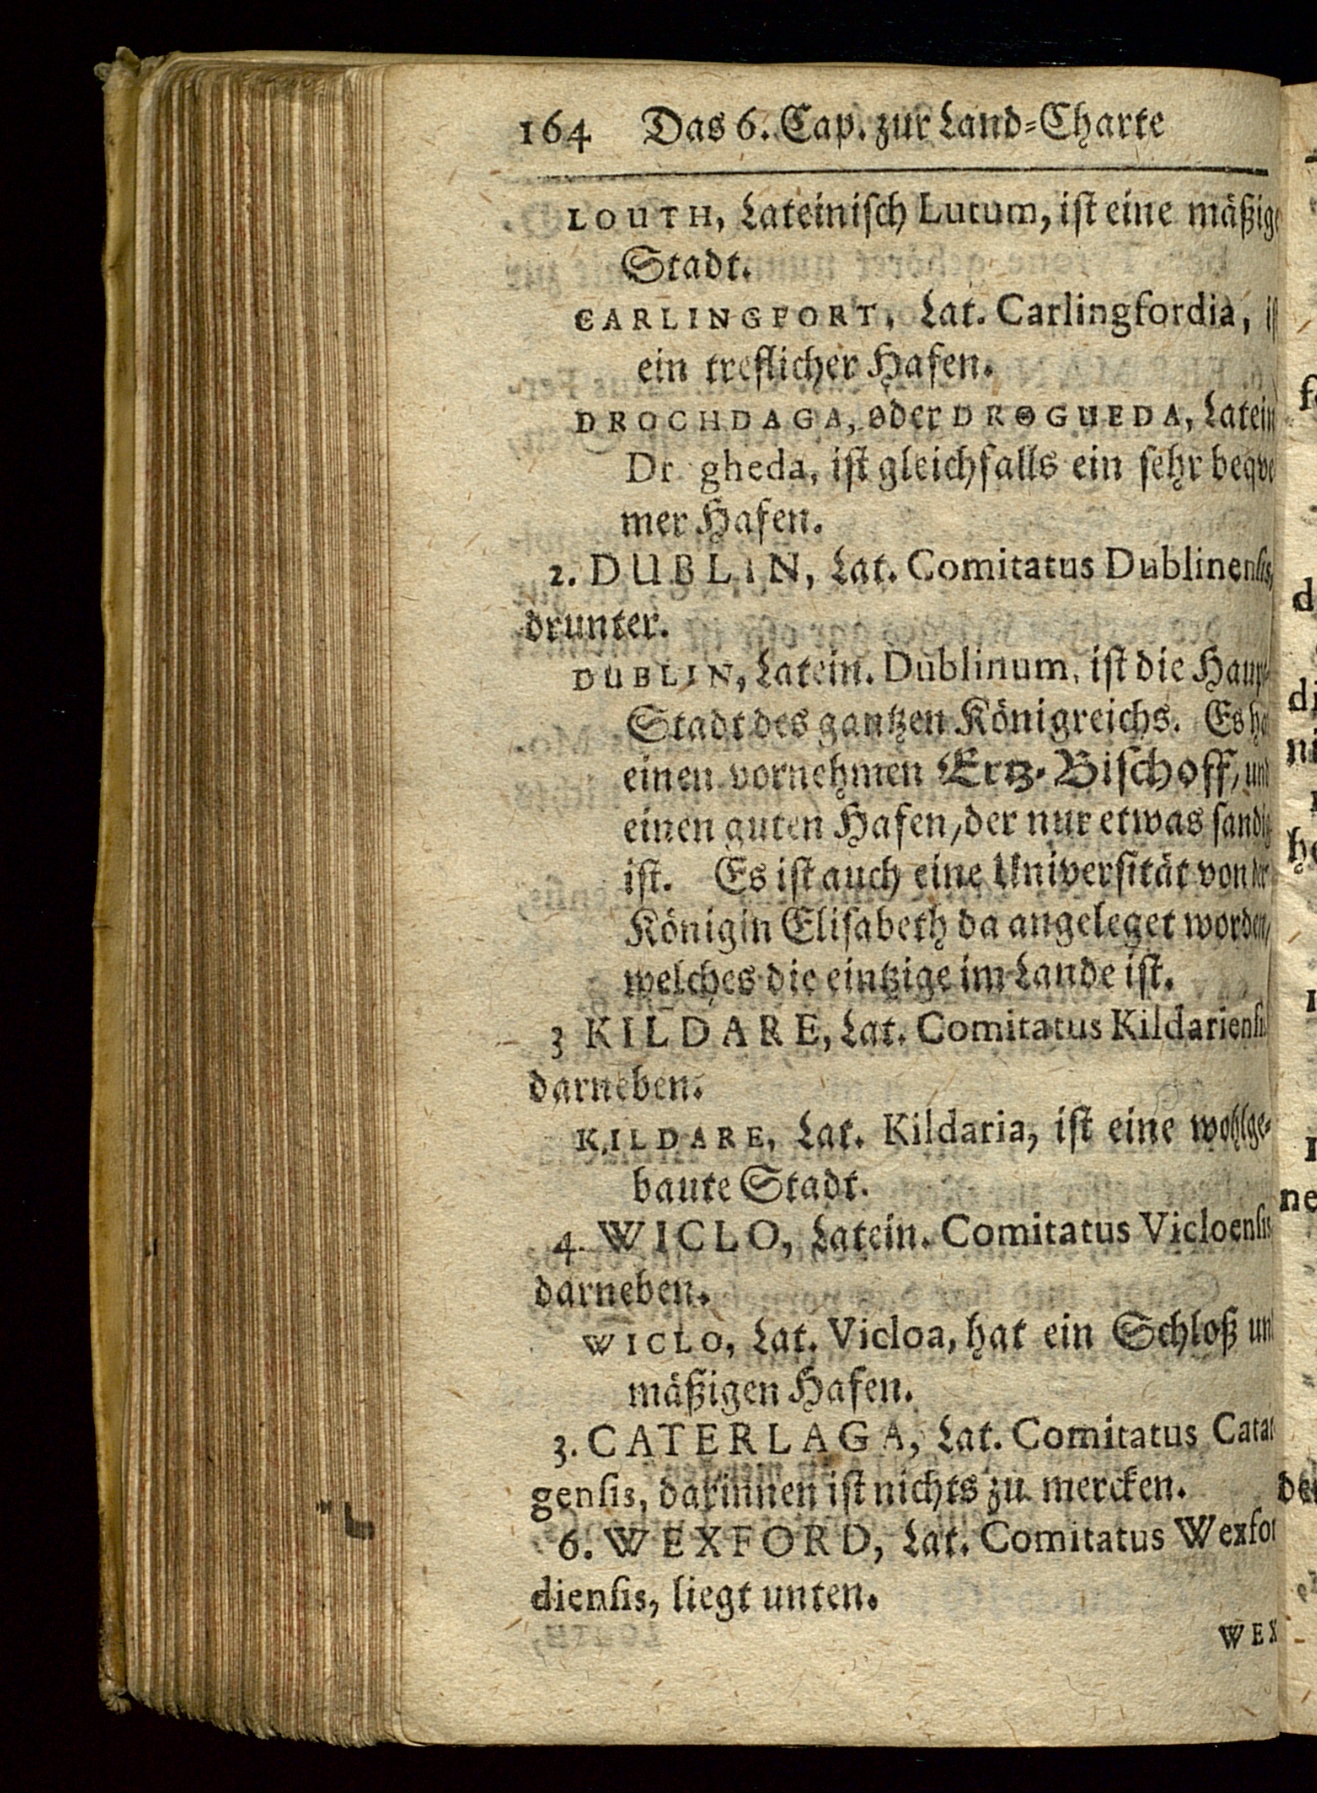 164 Das 6. Cap. zur Land-Charte
LOUTH, Lateinisch Lutum, ist eine mäßige
Stadt.
CARLINGFORT, Lat. Carlingfordia,
ein treflicher Hafen.
DROCHDAGA, oder DROGUEDA, Latein
Dr gheda, ist gleichfalls ein sehr beqve
mer Hafen.
2. DUBLIN, Lat. Comitatus Dublinensis,
drunter.
DUBLIN, Latein. Dublinum, ist die Haupt-
Stadt des gantzen Königreichs. Es hat
einen vornehmen Ertz-Bischoff, und
einen guten Hafen, der nur etwas sandig
ist. Es ist auch eine Universität von der
Königin Elisabeth da angeleget worden,
welches die eintzige im Lande ist.
3 KILDARE, Lat. Comitatus Kildariensis
darneben.
KILDARE, Lat. Kildaria, ist eine wohlge-
baute Stadt.
4. WICLO, Latein. Comitatus Vicloensis
darneben.
WICLO, Lat. Vicloa, hat ein Schloß und
mäßigen Hafen.
3. CATERLAGA, Lat. Comitatus Catar
gensis, darinnen ist nichts zu mercken.
6. WEXFORD, Lat. Comitatus Wexfor
diensis, liegt unten.
WEX